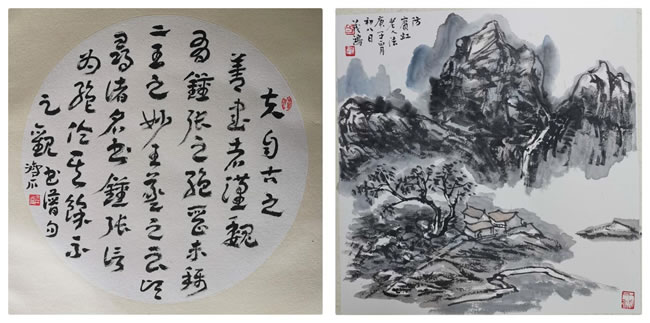 夫自古之
善書者漢魏
有鍾張之絕晋末稱
二王之妙王羲之云頃
尋諸名書鍾張信
为絕倫其餘不
足觀 书譜句
仿賓虹
老人法
庚子正月
初八日